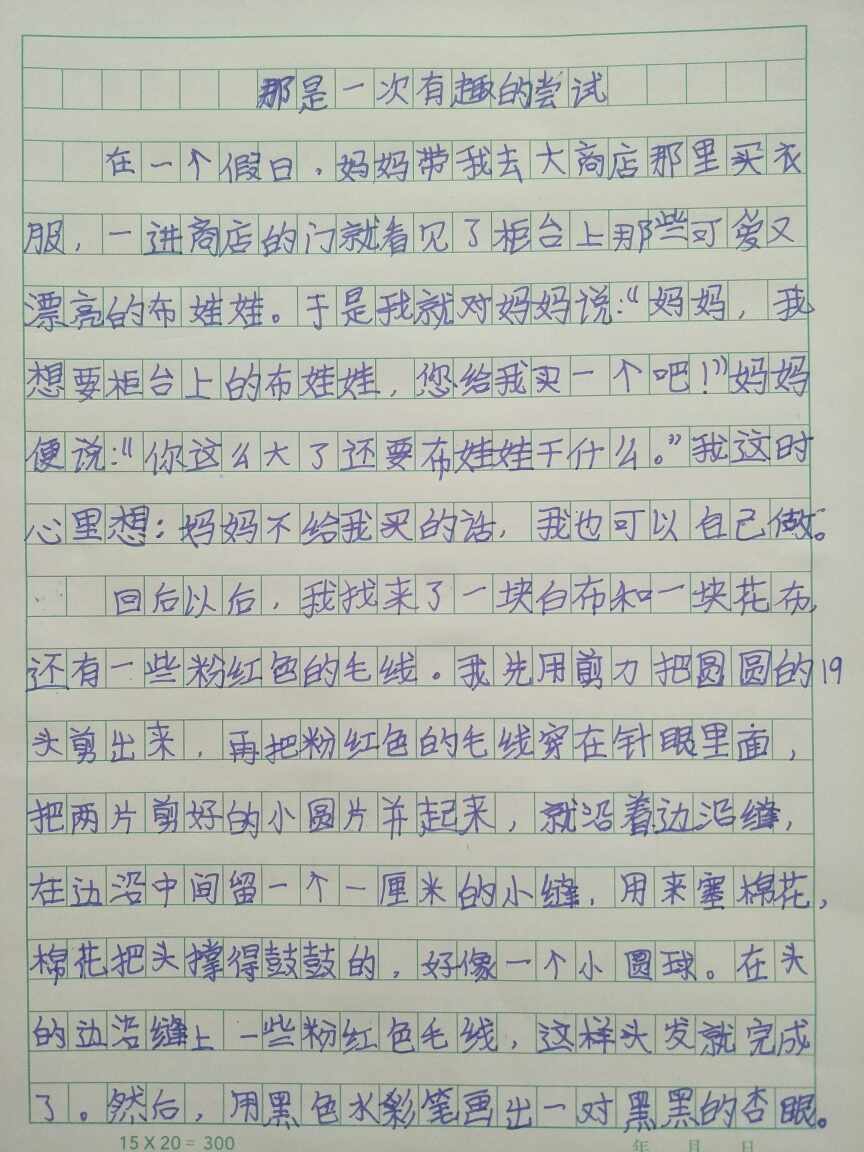 那是一次有趣的尝试
在一个假日，妈妈带我去大商店那里买衣
服，一进商店的门就看见了柜台上那些可爱又
漂亮的布娃娃。于是我就对妈妈说:“妈妈，我
想要柜台上的布娃娃，您给我买一个吧!”妈妈
便说:“你这么大了还要布娃娃干什么。”我这时
心里想:妈妈不给我买的话，我也可以自己做。
回后以后，我找来了一块白布和一块花布，
还有一些粉红色的毛线。我先用剪刀把圆圆的19
头剪出来，再把粉红色的毛线穿在针眼里面，
把两片剪好的小圆片并起来，就沿着边沿缝，
在边沿中间留一个一厘米的小缝，用来塞棉花，
棉花把头撑得鼓鼓的，好像一个小圆球。在头
的边沿缝上一些粉红色毛线，这样头发就完成
了。然后，用黑色水彩笔画出一对黑黑的杏眼。
15×20=300
年 月 日